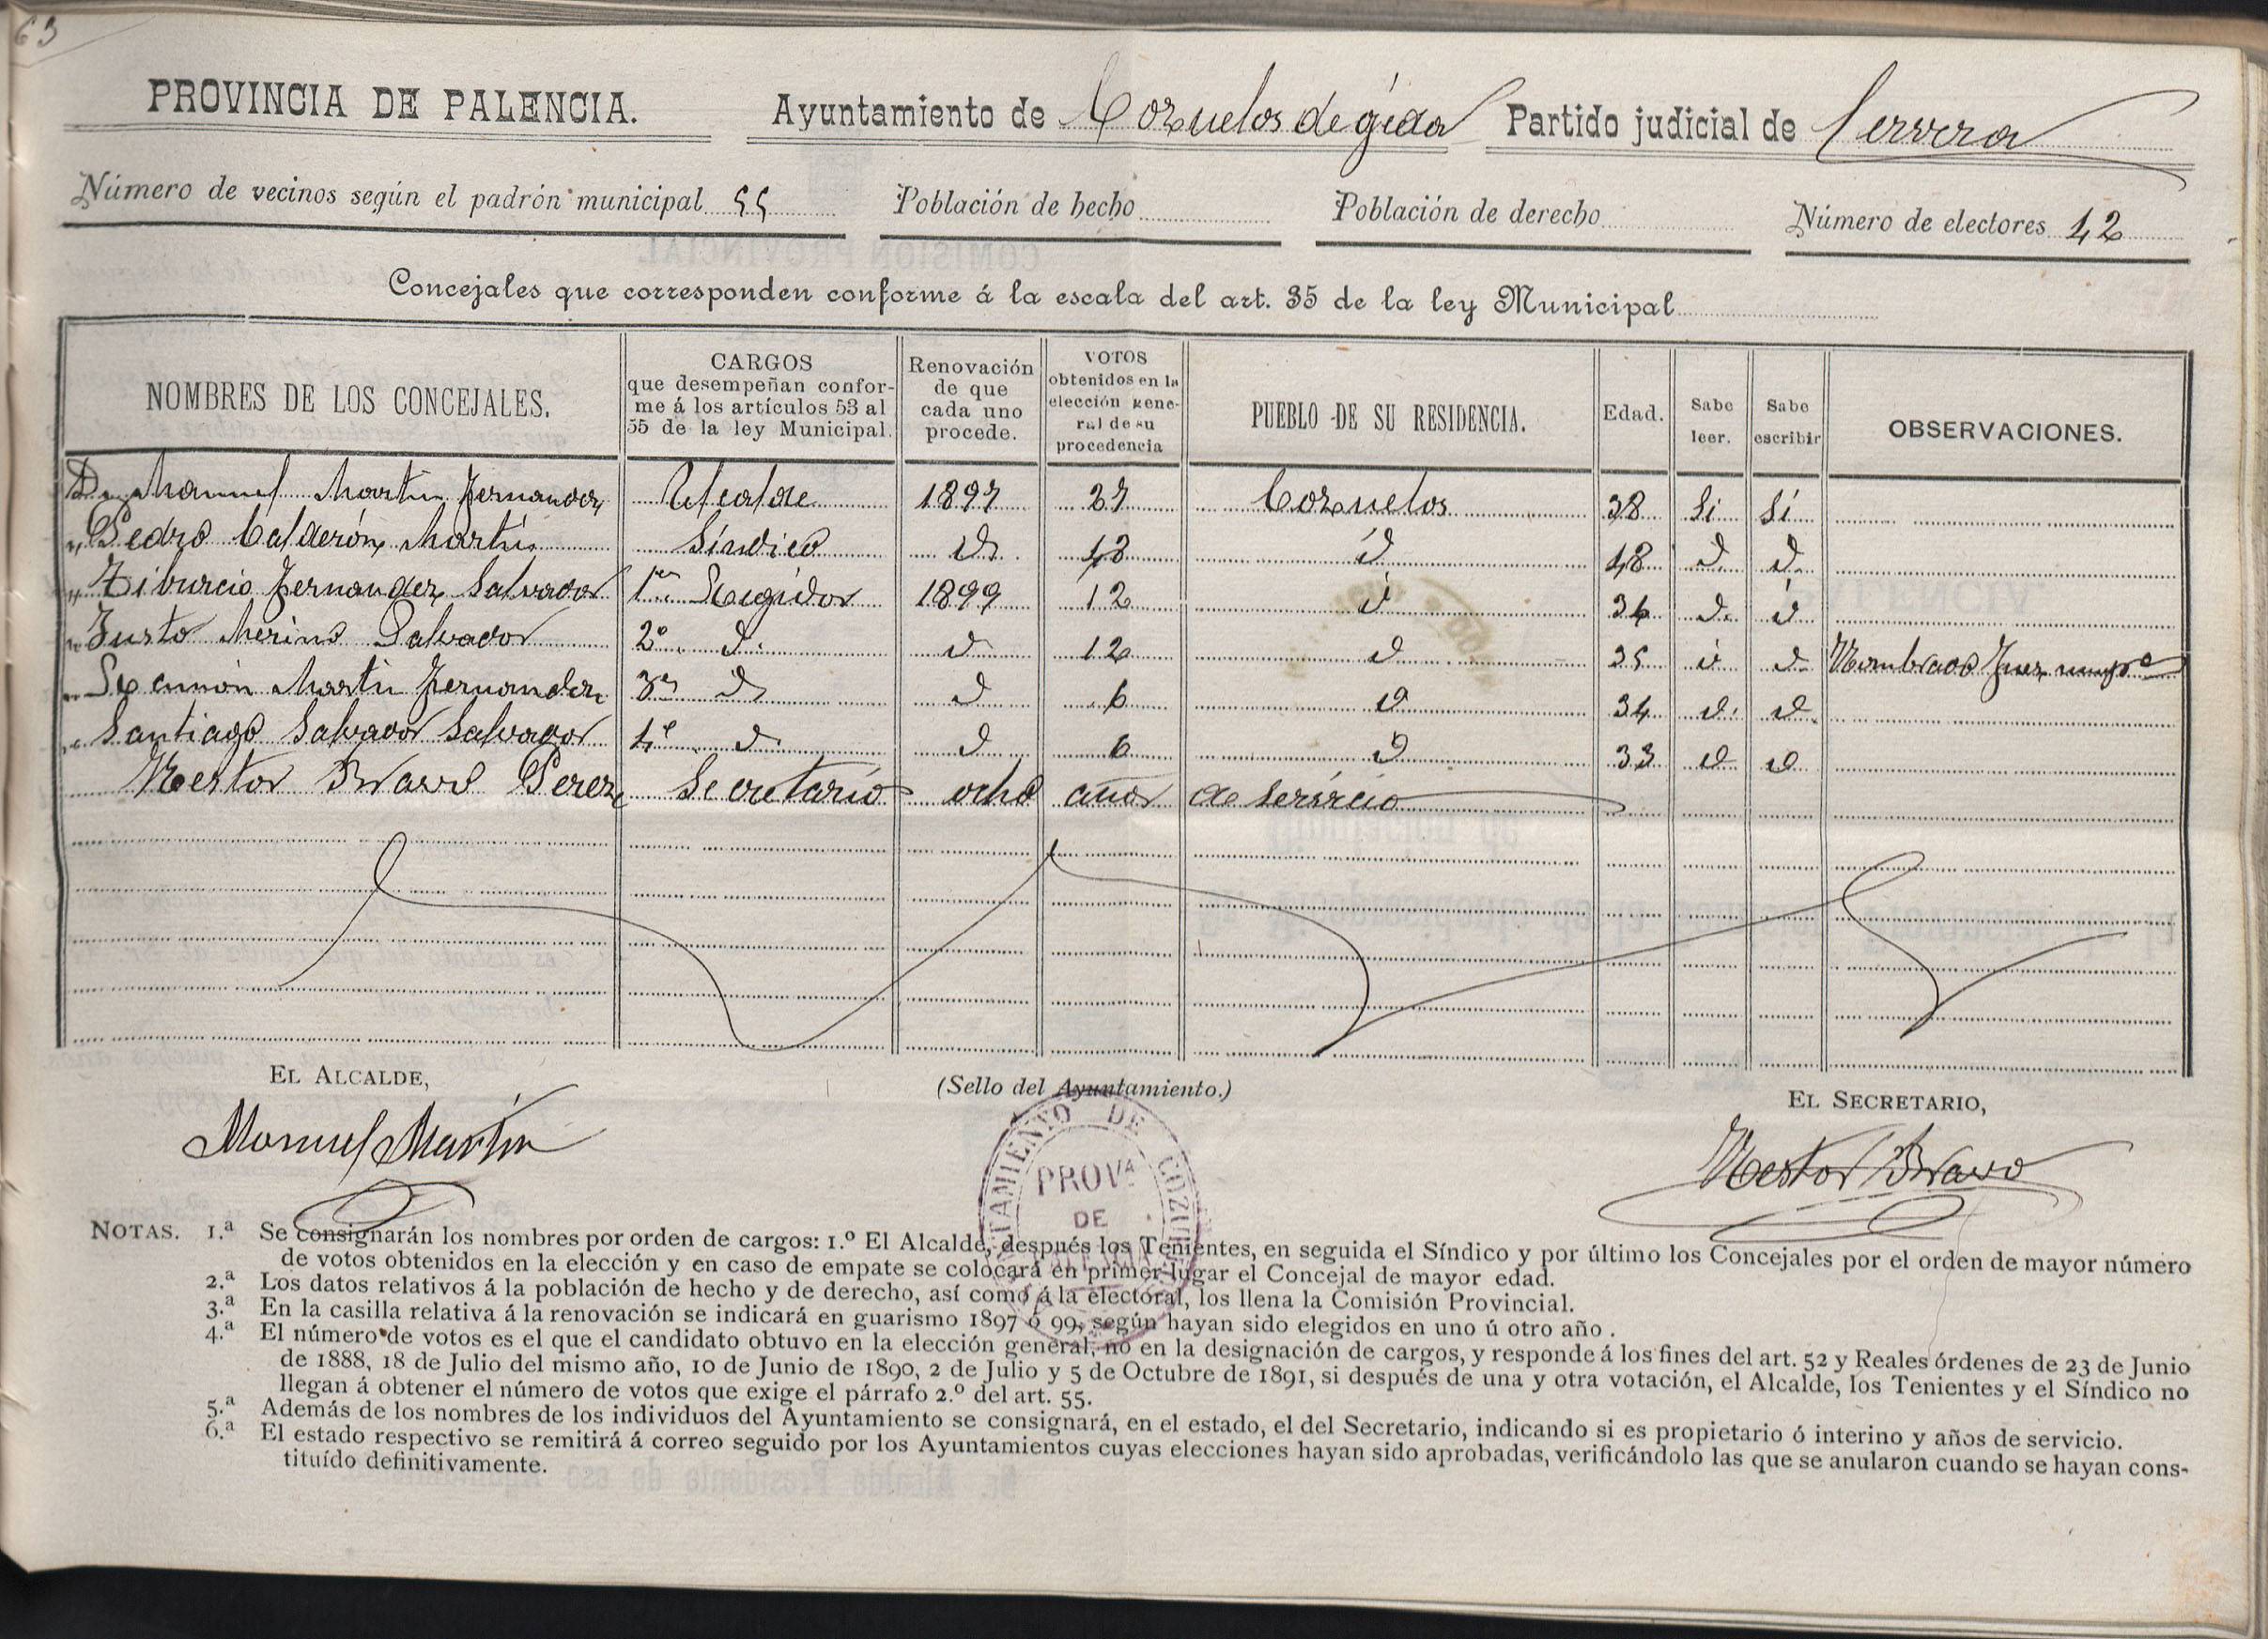 63
PROVINCIA DE PALENCIA. Ayuntamiento de Cozuelos de Ojeda Partido judicial de Cervera
Número de vecinos según el padrón municipal 55 Población de hecho Población de derecho Número de electores 42
Concejales que corresponden conforme á la escala del art. 35 de la ley Municipal
NOMBRES DE LOS CONCEJALES. CARGOS que desempeñan conforme á los artículos 53 al 55 de la ley Municipal. Renovación de que cada uno procede. VOTOS obtenidos en la elección general de su procedencia PUEBLO DE SU RESIDENCIA. Edad. Sabe leer. Sabe escribir OBSERVACIONES.
D. Manuel Martin Fernandez Alcalde 1897 27 Cozuelos 38 Si Sí
" Pedro Calderón Martin Síndico id 18 id 48 id id
" Tiburcio Fernandez Salvador 1er Regidor 1899 12 id 36 id id
" Justo Merino Salvador 2º id id 12 id 35 id id Nombrado Juez munpal
" Martin Fernandez 3er id id 6 id 34 id id
" Santiago Salvador Salvador 4º id id 6 id 33 id id
Nestor Bravo Perez Secretario ocho años de servicio
EL ALCALDE, (Sello del Ayuntamiento.) EL SECRETARIO,
Manuel Martin Nestor Bravo
AYUNTAMIENTO DE COZUELOS
PROVA DE
NOTAS. 1.ª Se consignarán los nombres por orden de cargos: 1.º El Alcalde, después los Tenientes, en seguida el Síndico y por último los Concejales por el orden de mayor número
de votos obtenidos en la elección y en caso de empate se colocará en primer lugar el Concejal de mayor edad.
2.ª Los datos relativos á la población de hecho y de derecho, así como á la electoral, los llena la Comisión Provincial.
3.ª En la casilla relativa á la renovación se indicará en guarismo 1897 ó 99, según hayan sido elegidos en uno ú otro año.
4.ª El número de votos es el que el candidato obtuvo en la elección general, no en la designación de cargos, y responde á los fines del art. 52 y Reales órdenes de 23 de Junio
de 1888, 18 de Julio del mismo año, 10 de Junio de 1890, 2 de Julio y 5 de Octubre de 1891, si después de una y otra votación, el Alcalde, los Tenientes y el Síndico no
llegan á obtener el número de votos que exige el párrafo 2.º del art. 55.
5.ª Además de los nombres de los individuos del Ayuntamiento se consignará, en el estado, el del Secretario, indicando si es propietario ó interino y años de servicio.
6.ª El estado respectivo se remitirá á correo seguido por los Ayuntamientos cuyas elecciones hayan sido aprobadas, verificándolo las que se anularon cuando se hayan cons-
tituído definitivamente.